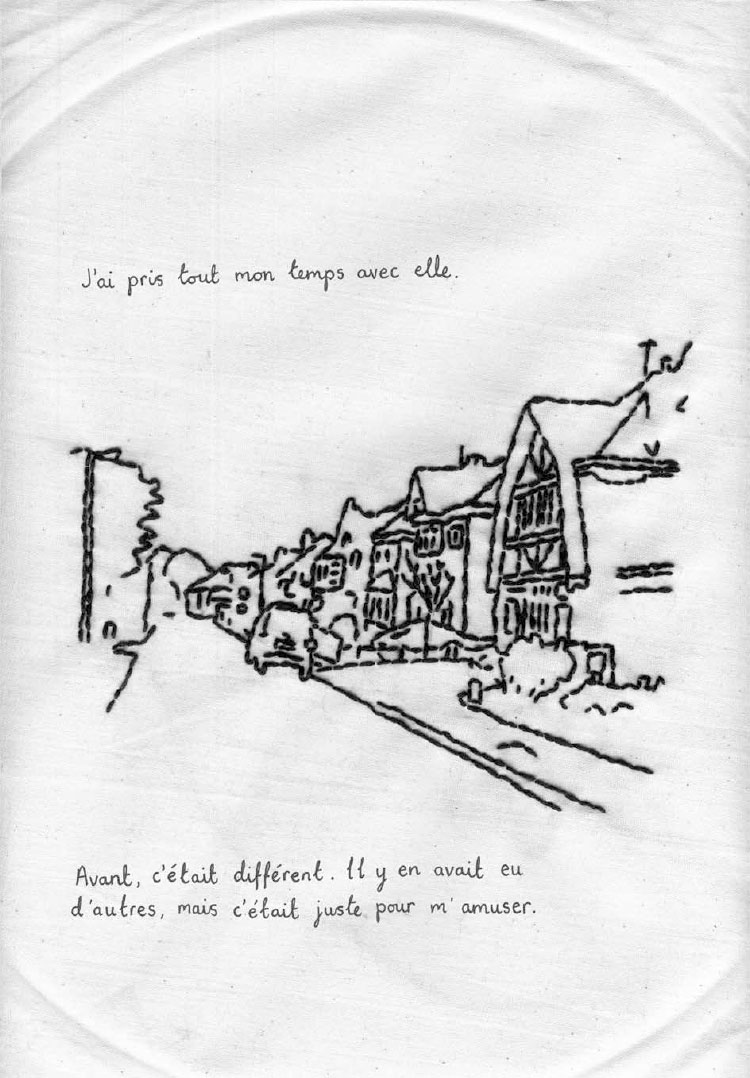 J'ai pris tout mon temps avec elle.
Avant, c'était différent. Il y en avait eu
d'autres, mais c'était juste pour m'amuser.